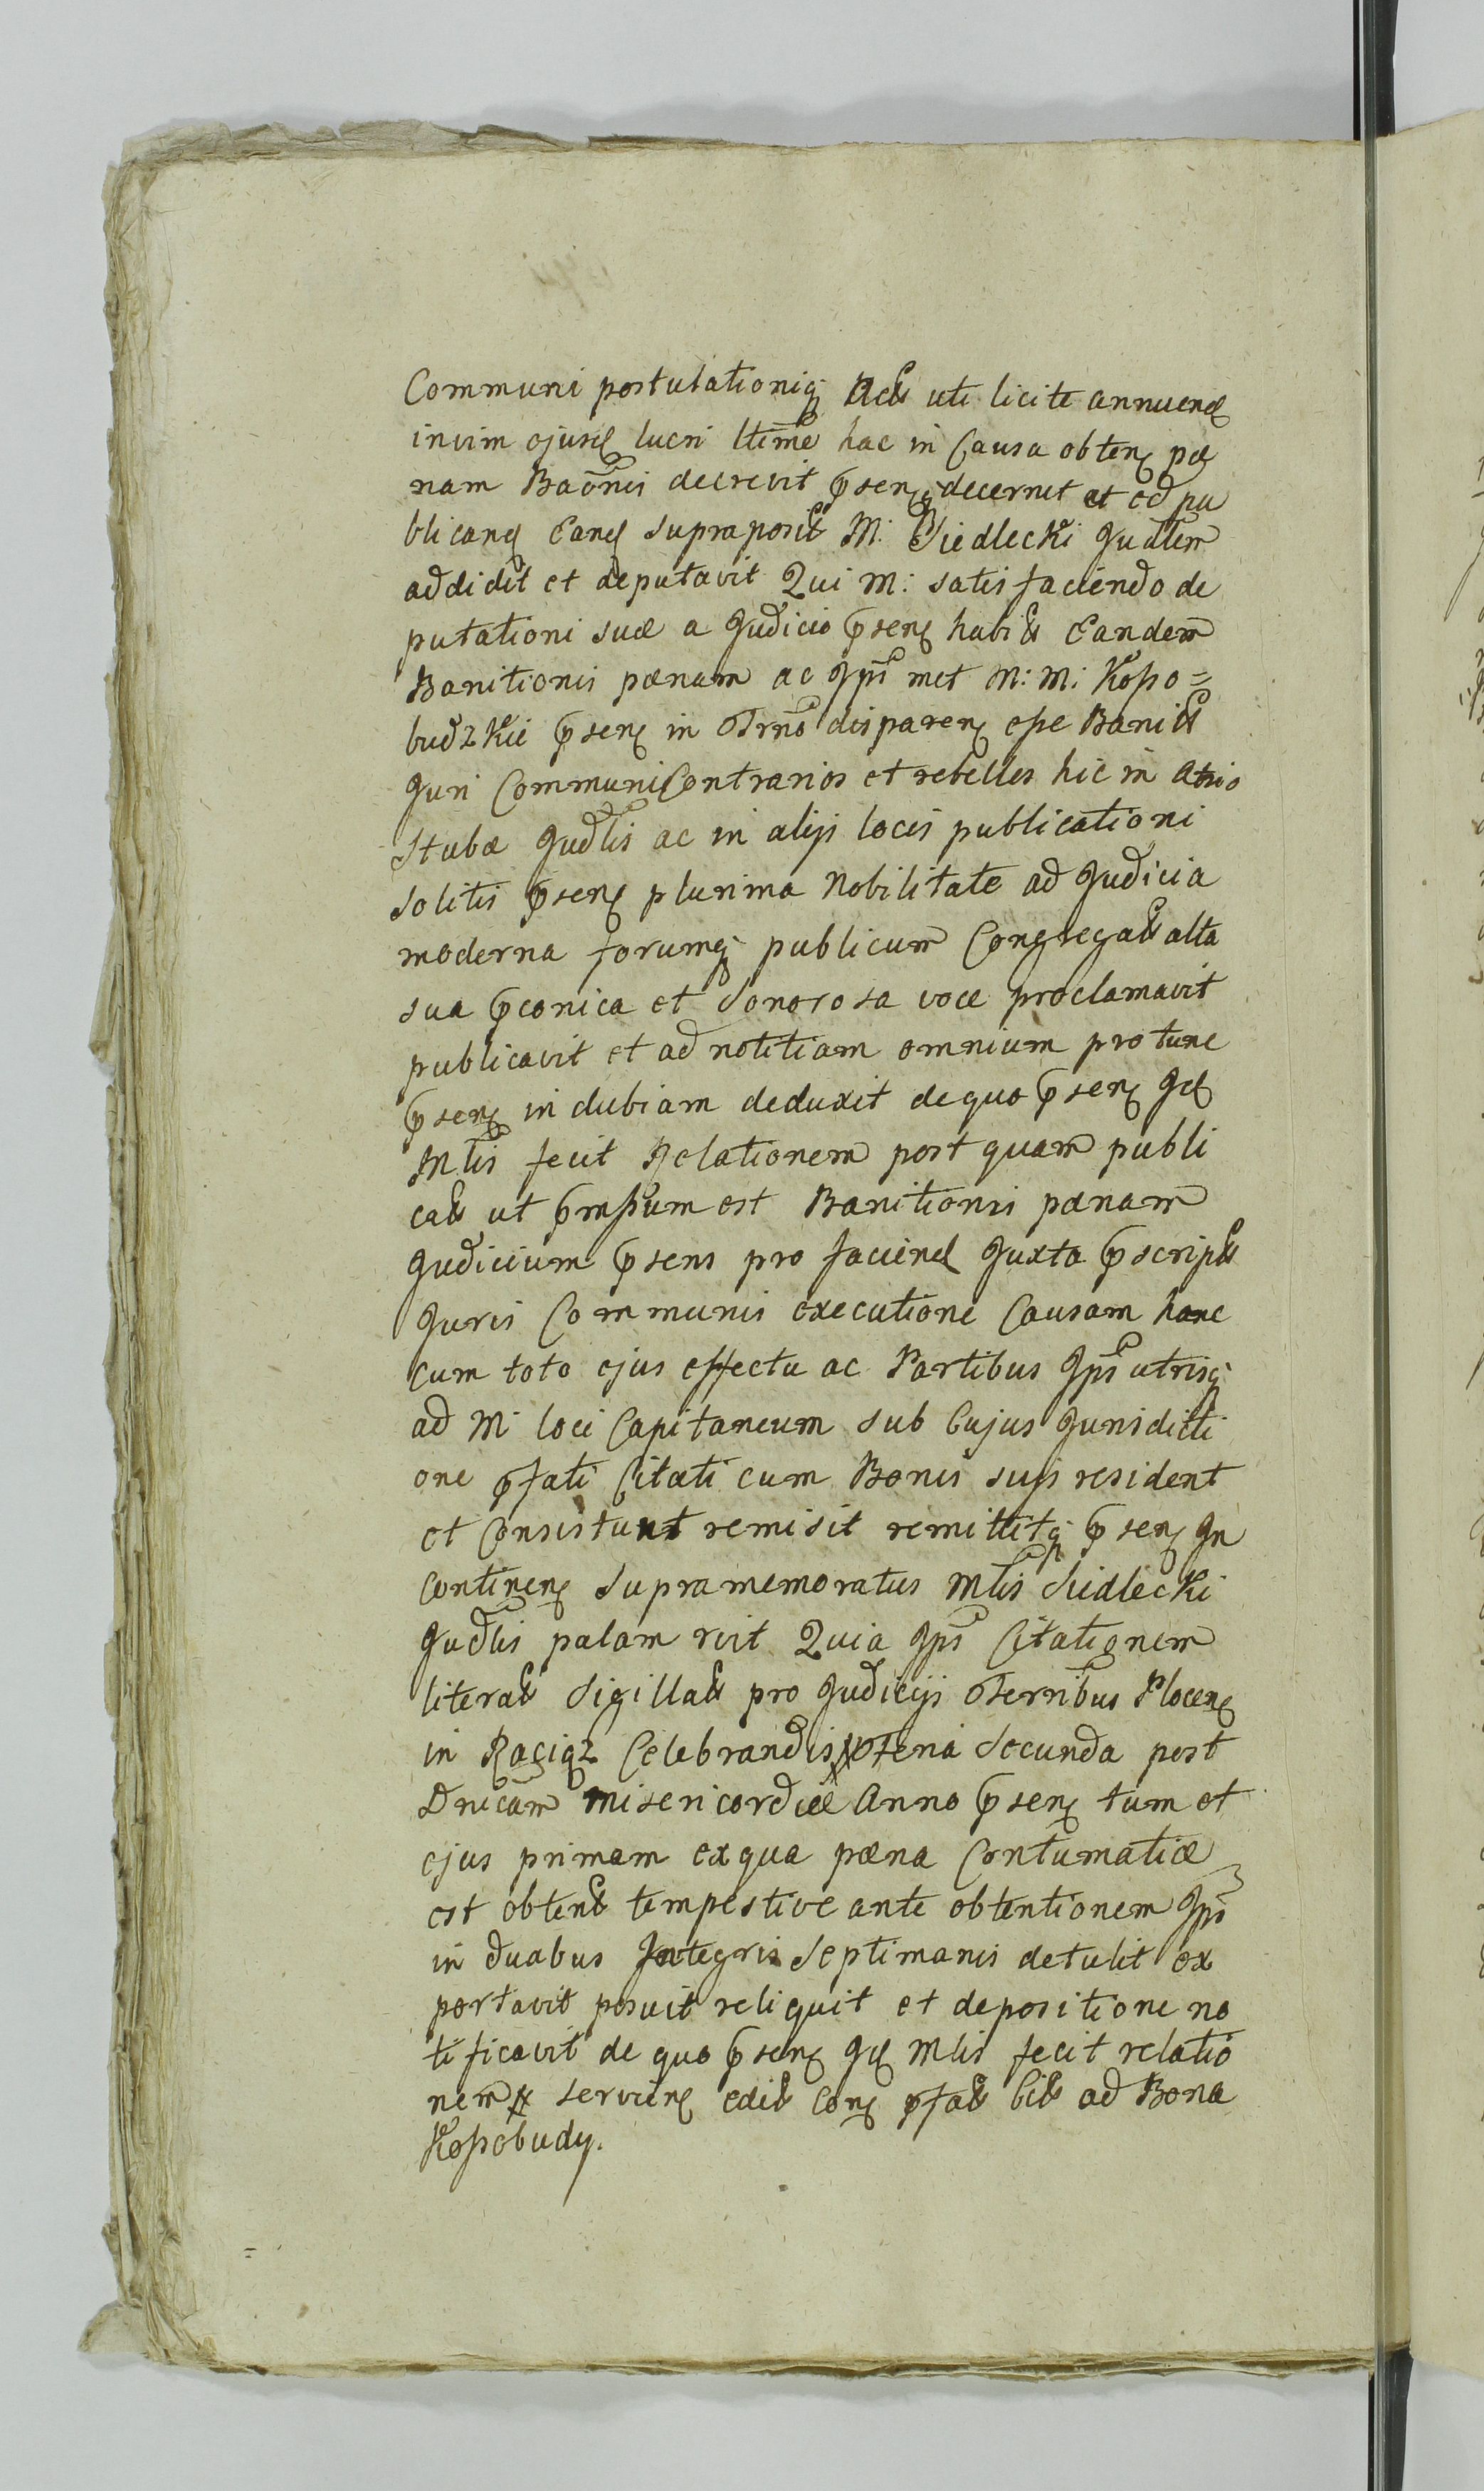 Communi postulationiq; Act uti licite annuend
invim ejusd lucri ltime hac in Causa obten pæ
nam Baonis decrevit psen decernit et ad pu
blicand Eand supraposit M: Siedlecki Judlem
addidit et deputavit Qui M: satis faciendo de
putationi suæ a Judicio psen habit Eandem
Banitionis pænam ac Jps met M: M: Kosso=
budzkie psen in Trno disparen esse Banit
Juri Communi Contrarios et rebelles hic in Atrio
Stubæ Judlis ac in alijs locis publicationi
solitis psen plurima Nobilitate ad Judicia
moderna forumq; publicum Congregat alta
sua pconica et Sonorosa voce proclamavit
publicavit et ad notitiam omnium pro tunc
psen in dubiam deduxit de quo psen Id
Mlis fecit Relationem post quam publi
cat ut pmissum est Banitionis pænam
Judicium psens pro faciend Juxta pscript
Juris Communis executione Causam hanc
cum toto ejus effectu ac Partibus Jps utrisq;
ad M: loci Capitaneum sub Cujus Jurisdicti
one pfati Citati cum Bonis suis resident
et Consistunt remisit remittitq; psen In
continen Supramemoratus Mlis Siedlecki
Judlis palam rvit Quia Jps Citationem
literat Sigillat pro Judicijs Terribus Plocen
in Raciąz Celebrandis Feria Secunda post
Dnicam misericordiæ Anno psen tum et
ejus primam ex qua pæna Contumatiæ
est obtent tempestive ante obtentionem Jps
in duabus Integris Septimanis detulit ex
portavit posuit reliquit et depositione no
tificavit de quo psen Id Mlis fecit relatio
nem servien edit Con pfat Cit ad Bona
Kossobudy.